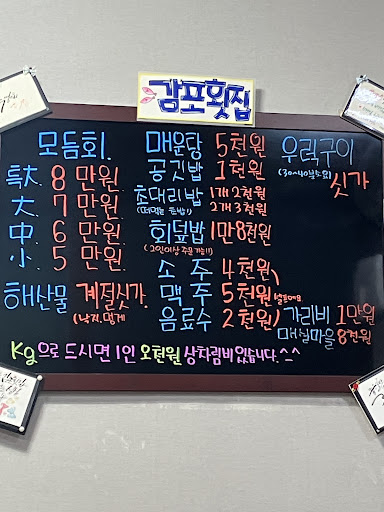 감포횟집
모듬회.
특大. 8 만원
大. 7 만원
中. 6 만원
小. 5 만원
해산물 계절싯가.
(낙지.멍게
매운탕 5천원
공깃밥 1천원
초대리밥 1개 2천원
2개 3천원
회덮밥 1만8천원
(2인이상 주문가능!!)
소 주 4천원
맥 주 5천원
음료수 2천원
우럭구이
(30~40분소요) 싯가
가리비 1만원
매실마을 8천원
Kg으로 드시면 1인 오천원 상차림비있습니다.^^